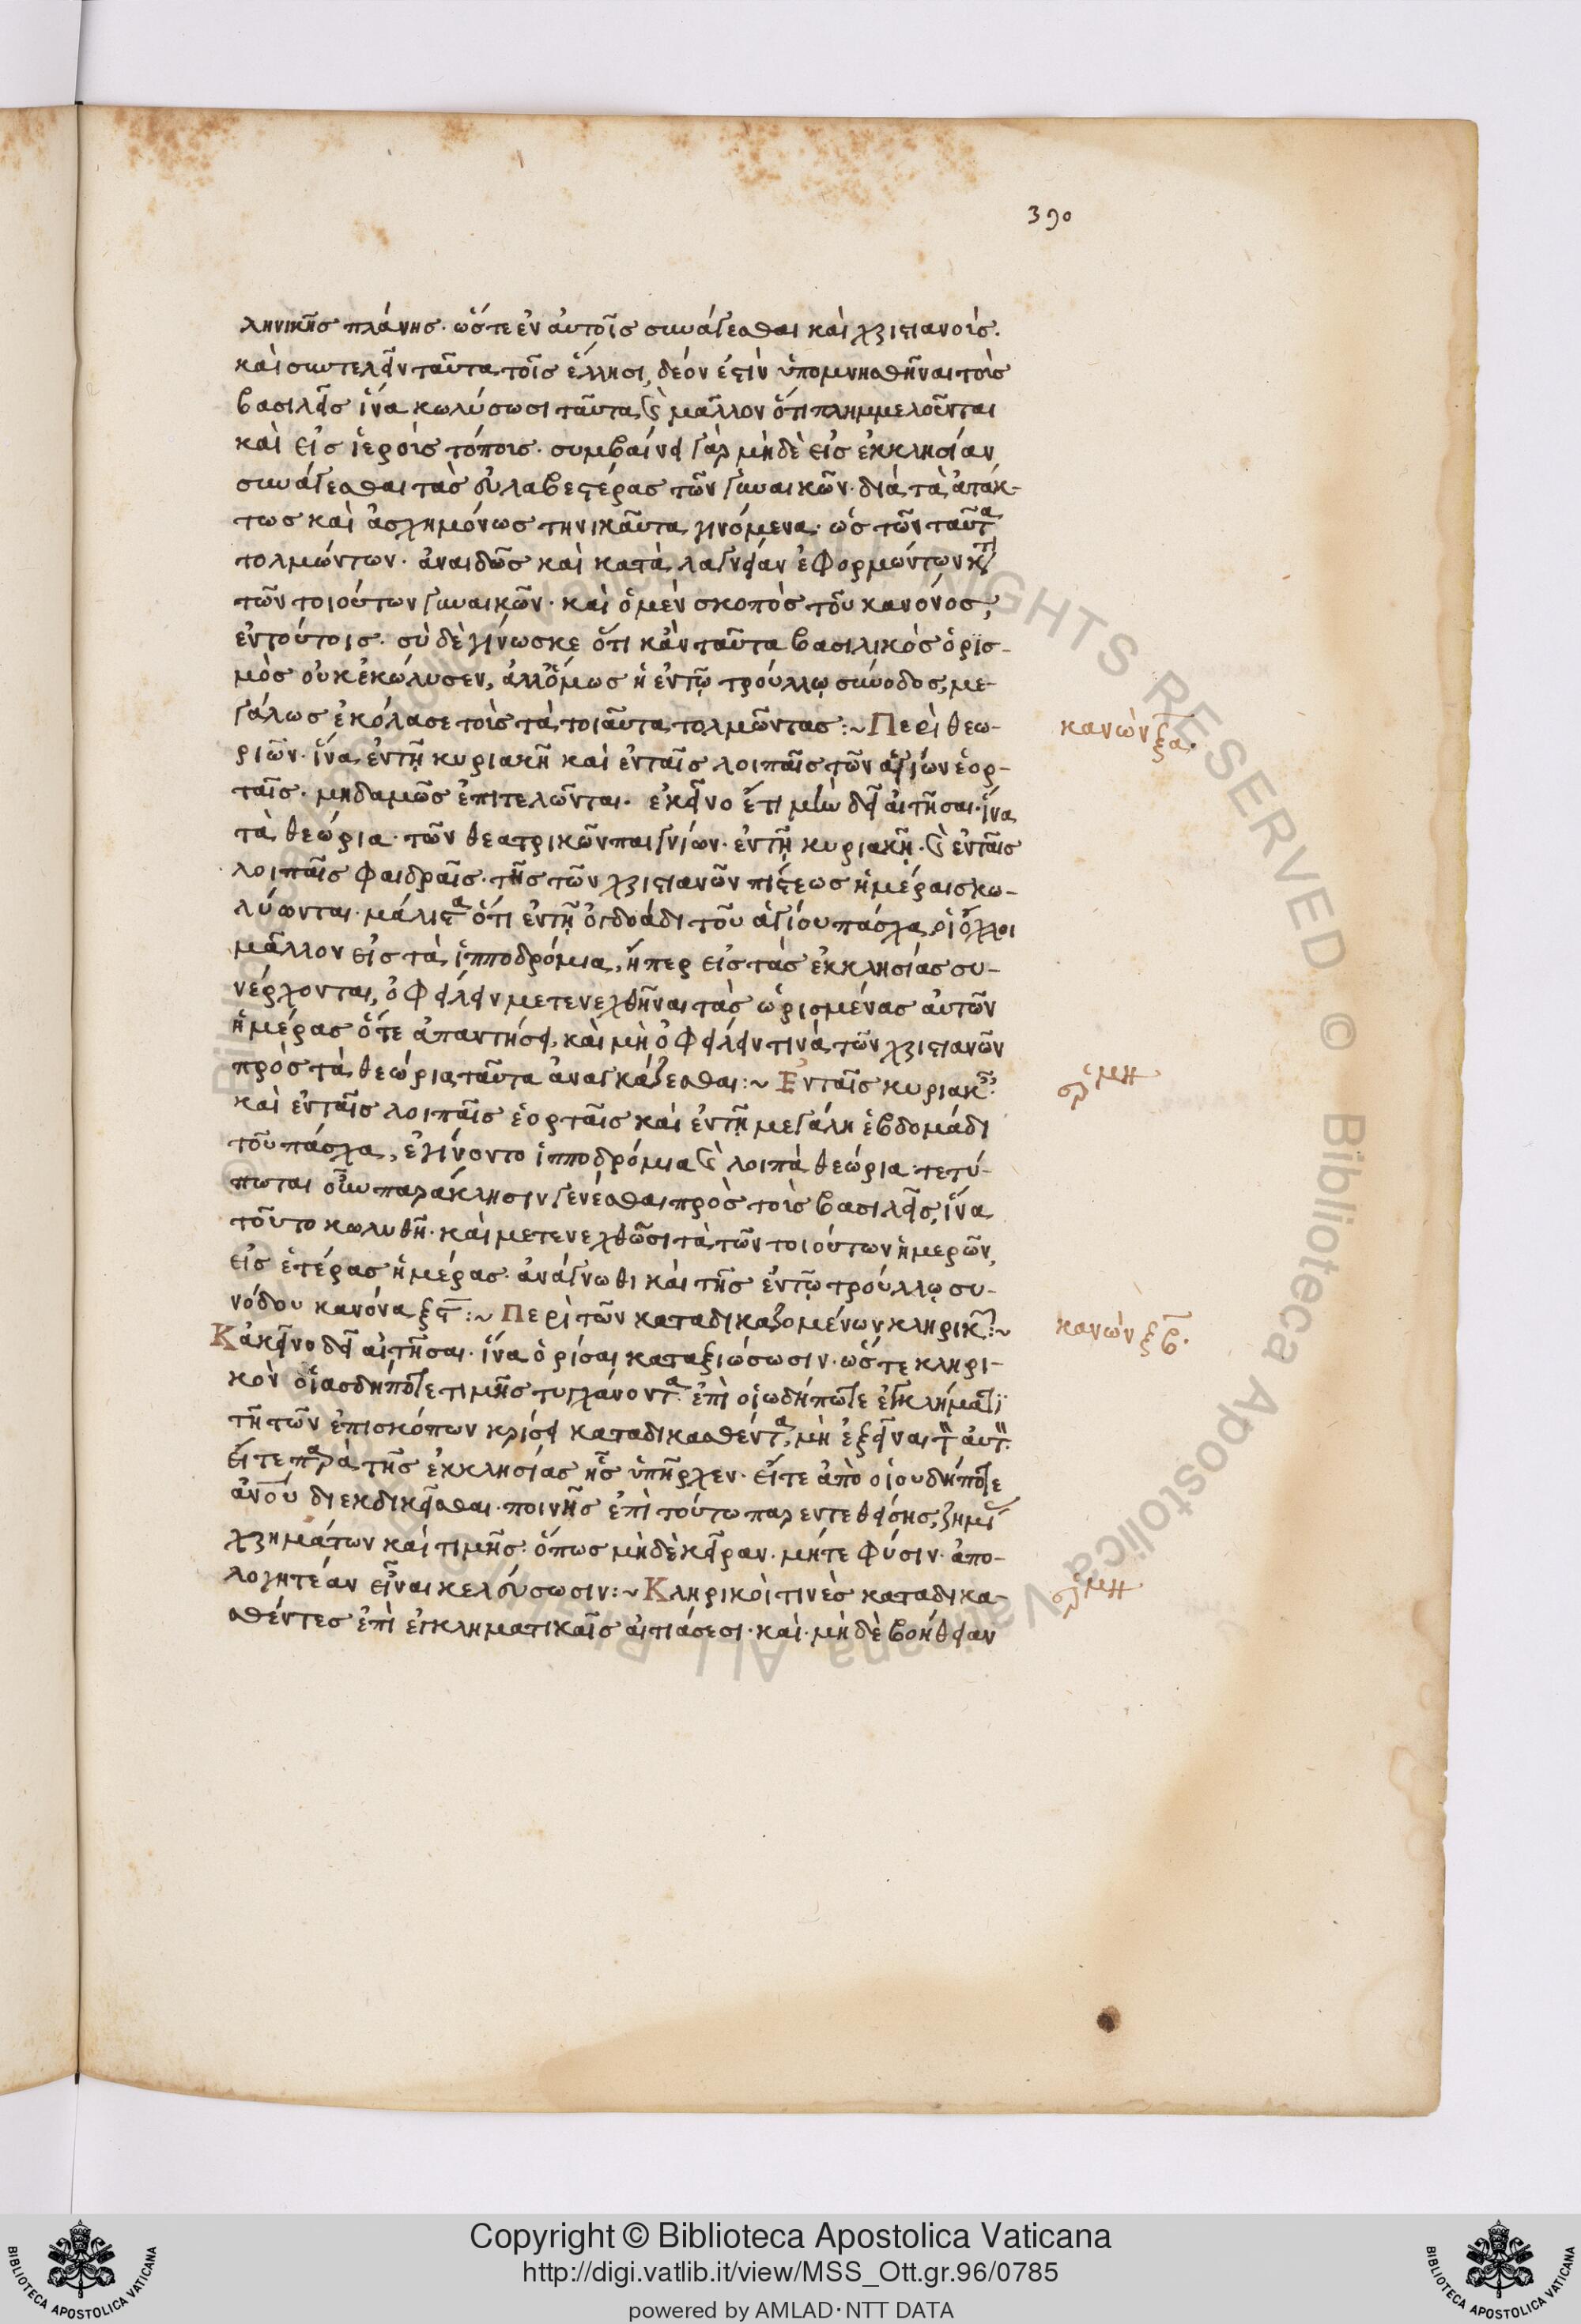 390
ληνικῆς πλάνης· ὥστε ἐν αὐτοῖς συνάγεσθαι καὶ χριστιανούς·
καὶ συντελεῖν ταῦτα τοῖς ἕλλησι, δέον ἐστὶν ὑπομνησθῆναι τοὺς
βασιλεῖς ἵνα κωλύσωσι ταῦτα, καὶ μᾶλλον ὅτι πλημμελοῦνται
καὶ εἰς ἱεροὺς τόπους· συμβαίνει γὰρ μὴ δὲ εἰς ἐκκλησίαν
συνάγεσθαι τὰς εὐλαβεστέρας τῶν γυναικῶν· διὰ τὰ ἀτάκ-
τως καὶ ἀσχημόνως τηνικαῦτα γινόμενα· ὡς τῶν ταῦτα
τολμώντων· ἀναιδῶς καὶ κατὰ λαγνείαν ἐφορμώντων κατὰ
τῶν τοιούτων γυναικῶν· καὶ ὁ μὲν σκοπὸς τοῦ κανόνος,
ἐν τούτοις· σὺ δὲ γίνωσκε ὅτι κἂν ταῦτα βασιλικὸς ὁρισ-
μὸς οὐκ ἐκώλυσεν, ἀλλ' ὅμως ἡ ἐν τῷ τρούλλῳ σύνοδος, με-
γάλως ἐκόλασε τοὺς τὰ τοιαῦτα τολμῶντας :~ Περὶ θεω-
κανὼν ξα·
ριῶν· ἵνα ἐν τῇ κυριακῇ καὶ ἐν ταῖς λοιπαῖς τῶν ἁγίων ἑορ-
ταῖς· μηδαμῶς ἐπιτελῶνται· ἐκεῖνο ἔτι μὴν δεῖ αἰτῆσαι· ἵνα
τὰ θεώρια· τῶν θεατρικῶν παιγνίων· ἐν τῇ κυριακῇ· καὶ ἐν ταῖς
λοιπαῖς φαιδραῖς· τῆς τῶν χριστιανῶν πίστεως ἡμέραις κω-
λύωνται· μάλιστα ὅτι ἐν τῇ ὀγδοάδι τοῦ ἁγίου πάσχα, οἱ ὄχλοι
μᾶλλον εἰς τὰ ἱπποδρόμια, ἤπερ εἰς τὰς ἐκκλησίας συ-
νέρχονται, ὀφείλειν μετενεχθῆναι τὰς ὡρισμένας αὐτῶν
ἡμέρας ὅτε ἀπαντήσει, καὶ μὴ ὀφείλειν τινὰ τῶν χριστιανῶν
πρὸς τὰ θεώρια ταῦτα ἀναγκάζεσθαι :~ Ἐν ταῖς κυριακαῖς
καὶ ἐν ταῖς λοιπαῖς ἑορταῖς καὶ ἐν τῇ μεγάλῃ ἑβδομάδι
τοῦ πάσχα, ἐγίνοντο ἱπποδρόμια καὶ λοιπὰ θεώρια· τετύ-
πωται οὖν παράκλησιν γενέσθαι πρὸς τοὺς βασιλεῖς, ἵνα
τοῦτο κωλυθῇ· καὶ μετενεχθῶσι τὰ τῶν τοιούτων ἡμερῶν,
εἰς ἑτέρας ἡμέρας· ἀνάγνωθι καὶ τῆς ἐν τῷ τρούλλῳ συ-
νόδου κανόνα ξϛ :~ Περὶ τῶν καταδικαζομένων κληρικῶν :~
κανὼν ξβ·
Κἀκεῖνο δεῖ αἰτῆσαι· ἵνα ὁρίσαι καταξιώσωσιν· ὥστε κληρι-
κὸν οἵας δήποτε τιμῆς τυγχάνοντα· ἐπὶ οἱωδήποτε ἐγκλήματι
τῇ τῶν ἐπισκόπων κρίσει καταδικασθέντα, μὴ ἐξεῖναι τὸν αὐτὸν
εἴτε παρὰ τῆς ἐκκλησίας ἧς ὑπῆρχεν· εἴτε ἀπὸ οἱουδήποτε
ἀνου διεκδικεῖσθαι· ποινῆς ἐπὶ τούτω παρεντεθείσης, ζημίας
χρημάτων καὶ τιμῆς· ὅπως μὴ δὲ κεῖραν· μήτε φύσιν· ἀπο-
λογητέαν εἶναι κελεύσωσιν :~ Κληρικοὶ τινὲς καταδικα-
σθέντες ἐπὶ ἐγκληματικαῖς αἰτιάσεσι· καὶ· μὴ δὲ βοήθειαν